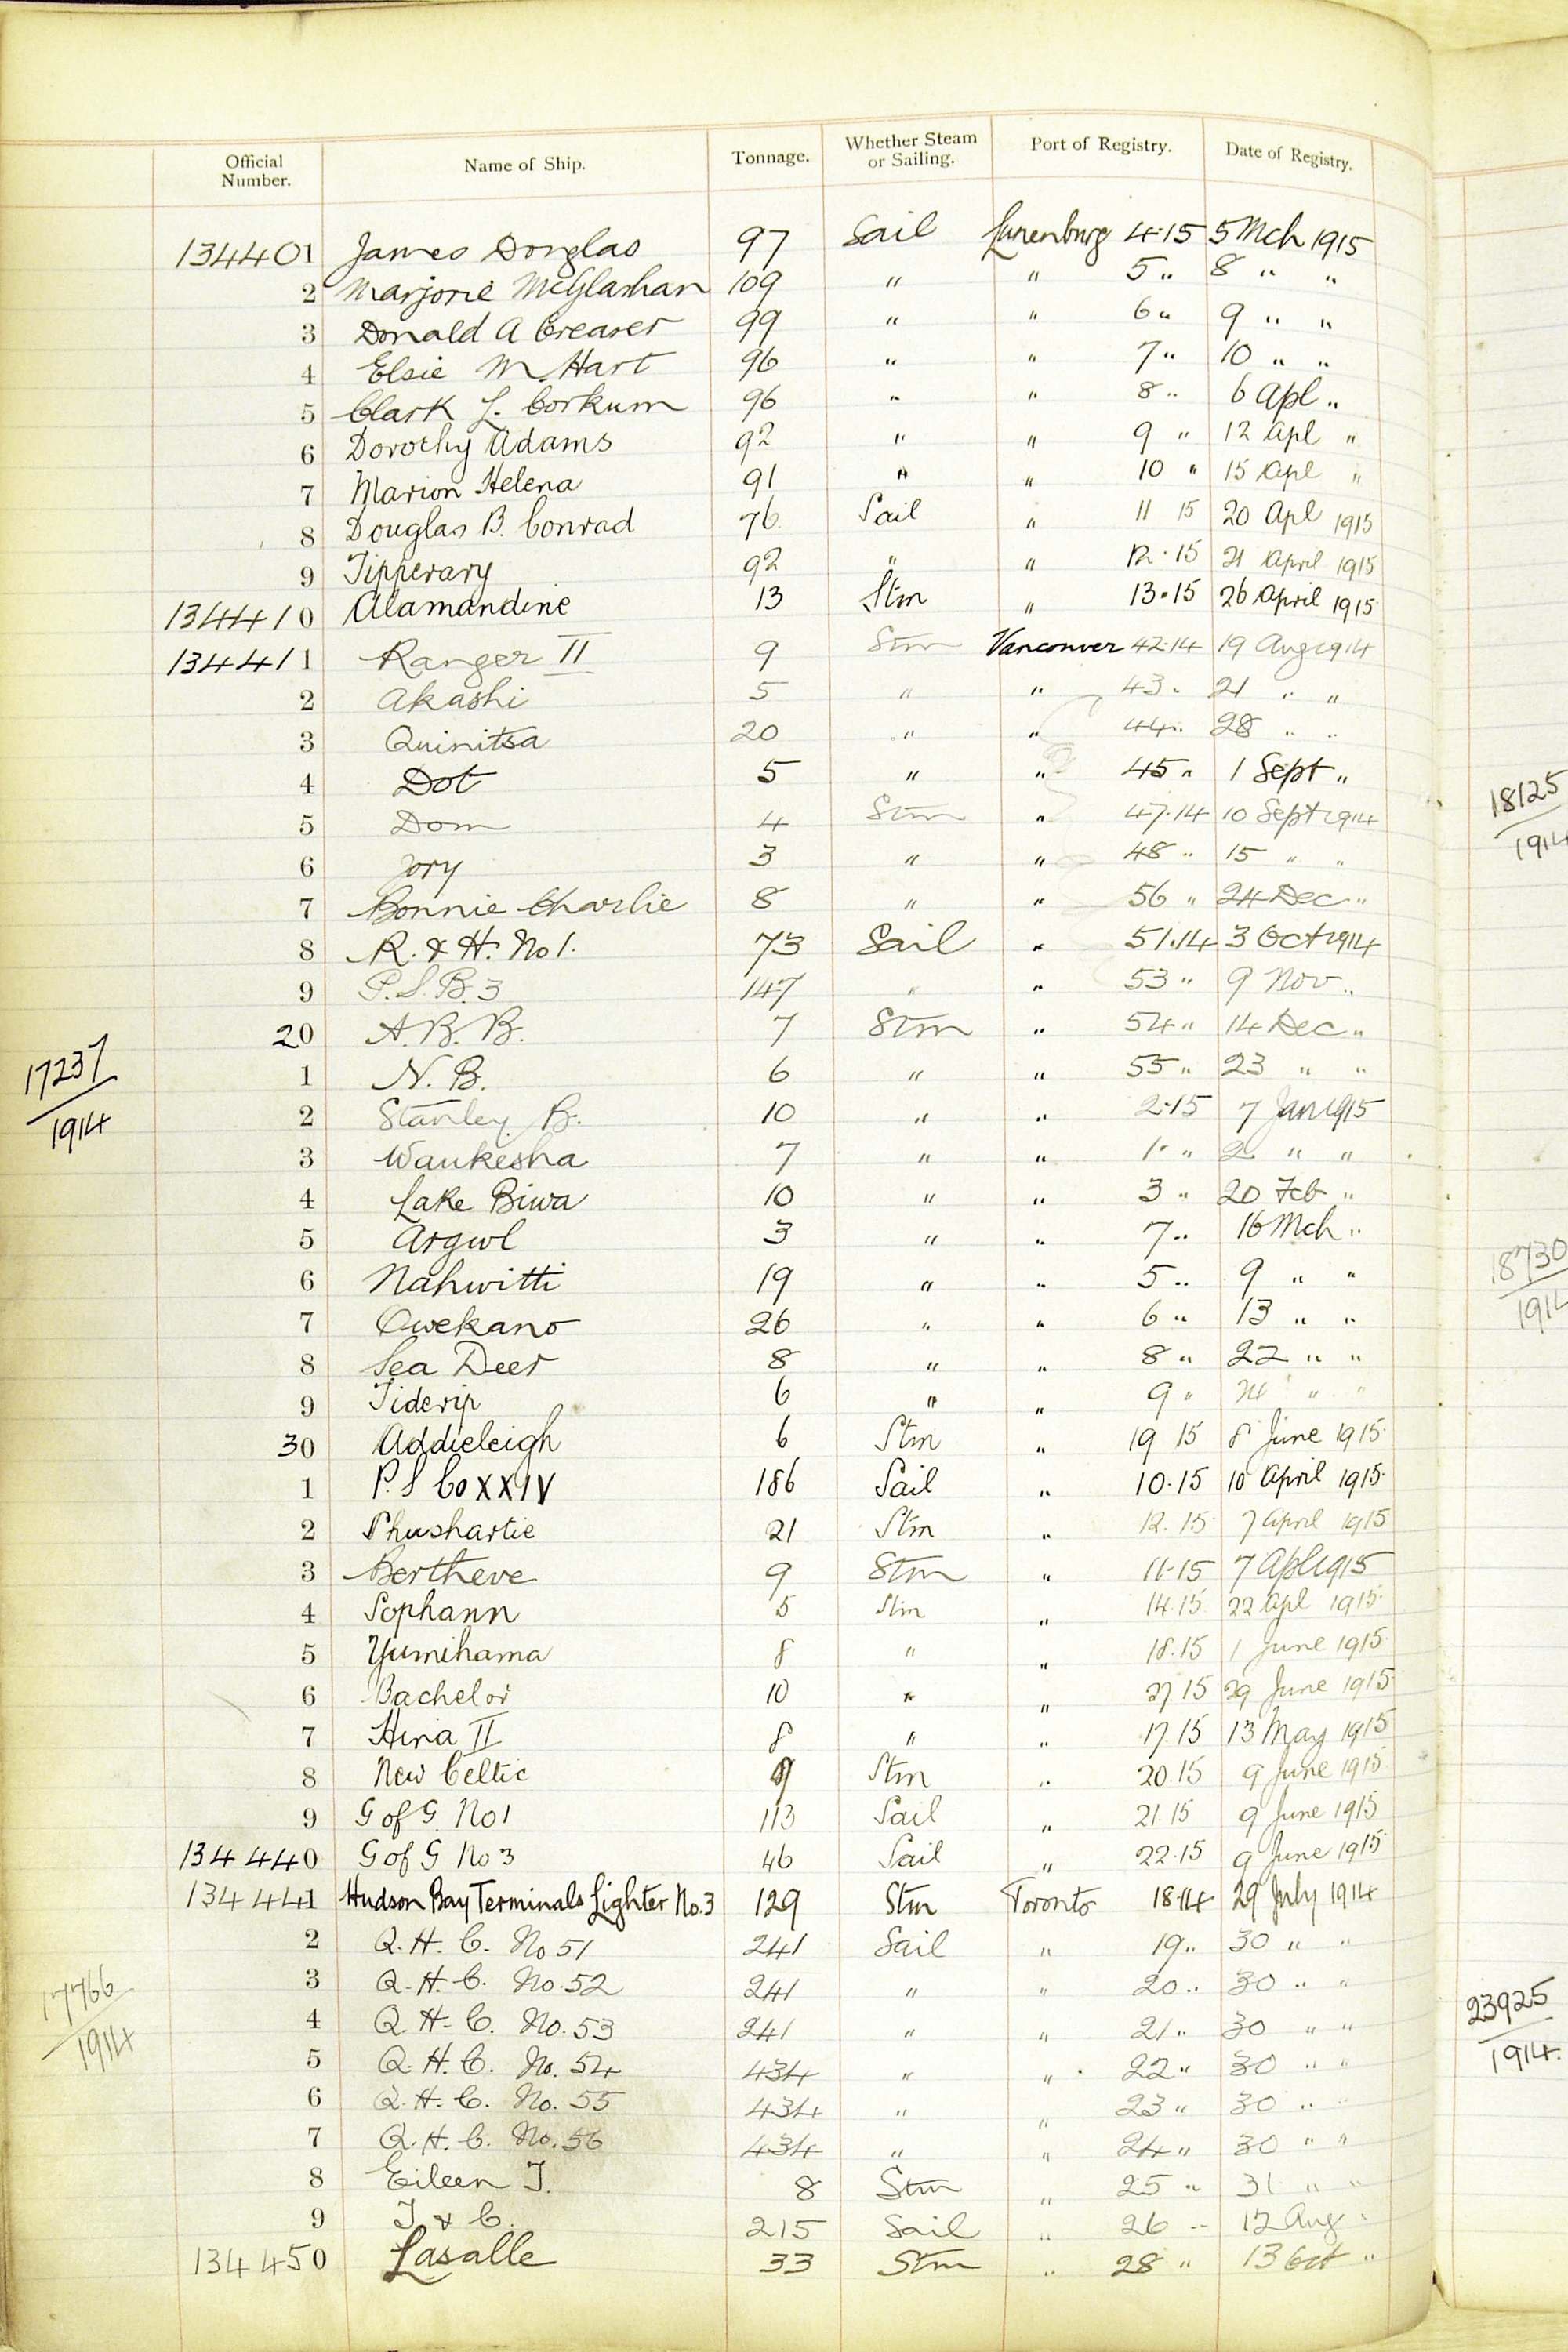 Official Number. Name of Ship. Tonnage. Whether Steam or Sailing. Port of Registry. Date of Registry.
134401 James Douglas 97 Sail Lunenburg 4.15 5 Mch 1915
2 Marjorie McGlashan 109 " " 5 " 8 " "
3 Donald A Creaser 99 " " 6 " 9 " "
4 Elsie M. Hart 96 " " 7 " 10 " "
5 Clark L. Corkum 96 " " 8 " 6 Apl "
6 Dorothy Adams 92 " " 9 " 12 Apl "
7 Marion Helena 91 " " 10 " 15 Apl "
8 Douglas B. Conrad 76 Sail " 11 15 20 Apl 1915
9 Tipperary 92 " " 12.15 21 April 1915
134410 Alamandine 13 Stm " 13.15 26 April 1915
134411 Ranger II 9 Stm Vancouver 42.14 19 Aug 1914
2 Akashi 5 " " 43 " 21 " "
3 Quinitsa 20 " " 44 " 28 " "
4 Dot 5 " " 45 " 1 Sept "
5 Dom 4 Stm " 47.14 10 Sept 1914
6 Jory 3 " " 48 " 15 " "
7 Bonnie Charlie 8 " " 56 " 24 Dec "
8 R. & H. No 1. 73 Sail " 51.14 3 Oct 1914
9 P.S.B. 3 147 " " 53 " 9 Nov "
20 A.B.B. 7 Stm " 54 " 14 Dec "
17237
1914
1 N.B. 6 " " 55 " 23 " "
2 Stanley B. 10 " " 2.15 7 Jan 1915
3 Waukesha 7 " " 1 " 2 " "
4 Lake Biwa 10 " " 3 " 20 Feb "
5 Argwl 3 " " 7 " 16 Mch "
6 Nahwitti 19 " " 5 " 9 " "
7 Owekano 26 " " 6 " 13 " "
8 Sea Deer 8 " " 8 " 22 " "
9 Tiderip 6 " " 9 " 24 " "
30 Addieleigh 6 Stm " 19 15 8 June 1915
1 P.S Co XXIV 186 Sail " 10.15 10 April 1915
2 Shushartie 21 Stm " 12.15 7 April 1915
3 Bertheve 9 Stm " 11.15 7 Apl 1915
4 Sophann 5 Stm " 14.15 22 Apl 1915
5 Yumihama 8 " " 18.15 1 June 1915
6 Bachelor 10 " " 27 15 29 June 1915
7 Hina II 8 " " 17.15 13 May 1915
8 New Celtic Stm " 20.15 9 June 1915
9 G of G. No 1 113 Sail " 21.15 9 June 1915
134440 G of G No 3 46 Sail " 22.15 9 June 1915
134441 Hudson Bay Terminals Lighter No. 3 129 Stm Toronto 18.14 29 July 1914
2 Q.H.C. No 51 241 Sail " 19 " 30 " "
3 Q.H.C. No. 52 241 " " 20 " 30 " "
17766
1914
4 Q.H.C. No. 53 241 " " 21 " 30 " "
5 Q.H.C. No. 54 434 " " 22 " 30 " "
6 Q.H.C. No. 55 434 " " 23 " 30 " "
7 Q.H.C. No. 56 434 " " 24 " 30 " "
8 Eileen J. 8 Stm " 25 " 31 " "
9 J & C. 215 Sail " 26 " 12 Aug "
134450 Lasalle 33 Stm " 28 " 13 Oct "
18125
1914
18730
1914
23925
1914.